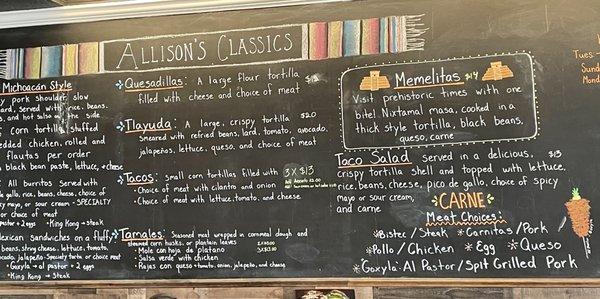 ALLISON'S CLASSICS
Michoacán Style
pork shoulder slow
served with rice, beans,
and hot salsa on the side
corn tortilla stuffed
chicken, rolled and
flautas per order
black bean paste, lettuce, + cheese
All burritos served with
rice, beans, cheese, choice of
mayo, or sour cream - SPECIALTY
or choice of meat
pastor + 2 eggs · King Kong → steak
Mexican sandwiches on a fluffy
beans, queso, cheese, lettuce, tomato,
avocado, jalapeño. Specialty torta or choice meat
· Guxyla → al pastor + 2 eggs
· King Kong → Steak
Quesadillas: A large flour tortilla $13
filled with cheese and choice of meat
Tlayuda: A large, crispy tortilla $20
smeared with refried beans, lard, tomato, avocado,
jalapeños, lettuce, queso, and choice of meat
Tacos: small corn tortillas filled with 3 x $13
· Choice of meat with cilantro and onion
· Choice of meat with lettuce, tomato, and cheese
Tamales: Seasoned meat wrapped in cornmeal dough and
steamed corn husks, or plantain leaves
· Mole con hoja de platano
· Salsa verde with chicken
· Rajas con queso - tomato, onion, jalapeño, and cheese
Memelitas $14
Visit prehistoric times with one
bite! Nixtamal masa, cooked in a
thick style tortilla, black beans,
queso, carne
Taco Salad Served in a delicious, $13
crispy tortilla shell and topped with lettuce,
rice, beans, cheese, pico de gallo, choice of spicy
mayo or sour cream,
and carne
CARNE
Meat Choices:
*Bistec/Steak *Carnitas/Pork
*Pollo/Chicken *Egg *Queso
*Gaxyla: Al Pastor/Spit Grilled Pork
Tues -
Sund
Mon